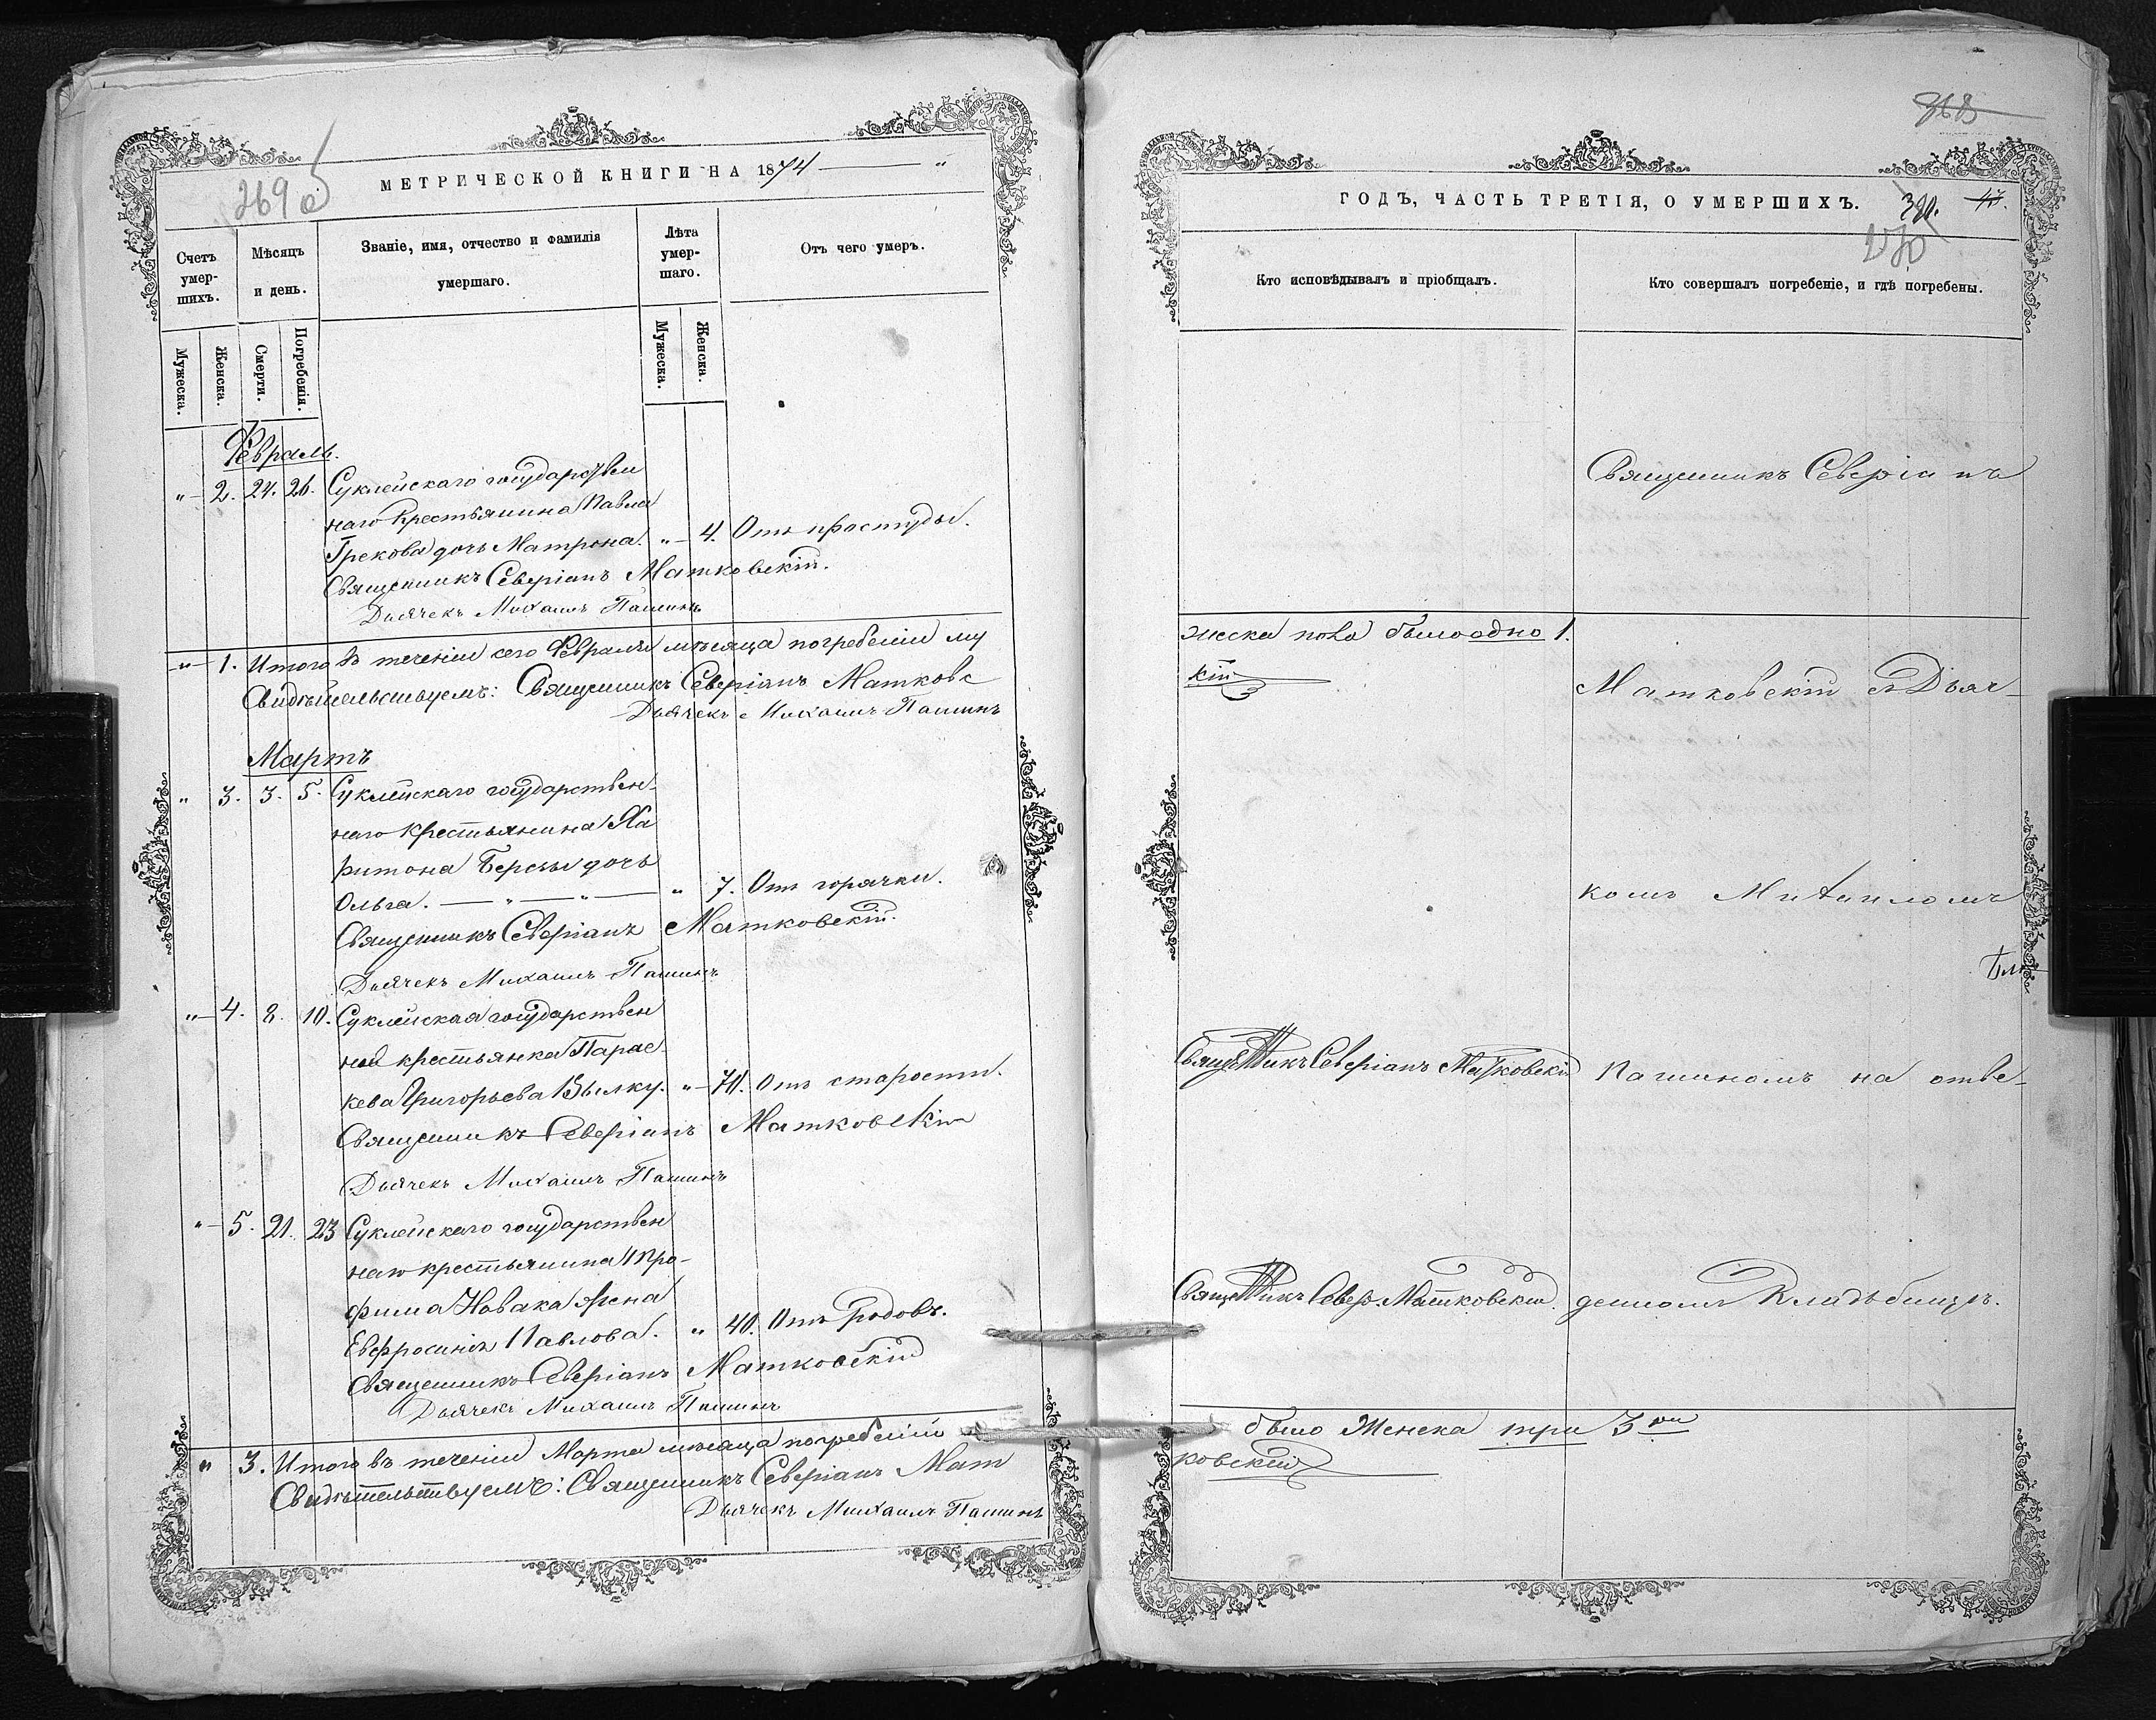 269 об
МЕТРИЧЕСКОЙ КНИГИ НА 1874
Счетъ умер-шихъ.
Мѣсяцъ и день.
Званіе, имя, отчество и фамилія умершаго.
Лѣта умер-шаго.
Отъ чего умеръ.
Мужеска.
Женска.
Смерти.
Погребенія.
Мужеска.
Женска.
Февраль.
"- 2. 24. 26. Суклейскаго государствен
наго крестьянина Павла
Грекова дочь Матрона. "- 4. Отъ простуды.
Священникъ Северіанъ Матковскій.
Дьячекъ Михаилъ Пашинъ
"- 1. Итого въ теченіи сего Февраля мѣсяца погребеній му
Свидѣтельствуемъ: Священникъ Северіанъ Матковс
Дьячекъ Михаилъ Пашинъ
Мартъ
" 3. 3. 5. Суклейскаго государствен-
наго крестьянина Ха
ритона Берсы дочь
Ольга. — " — " — " 7. Отъ горячки.
Священникъ Северіанъ Матковскій.
Дьячекъ Михаилъ Пашинъ
"- 4. 8. 10. Суклейская государствен
ная крестьянка Парас-
кева Григорьева Вылку. "- 70. Отъ старости.
Священникъ Северіанъ Матковскій
Дьячекъ Михаилъ Пашинъ
"- 5. 21. 23 Суклейскаго государствен
наго крестьянина
фима Новака жена
Евфросинія Павлова. " 40. Отъ родовъ.
Священникъ Северіанъ Матковскій
Дьячекъ Михаилъ Пашинъ
" 3. Итого въ теченіи Марта мѣсяца погребеній
Свидѣтельствуемъ: Священникъ Северіанъ Мат
Дьячекъ Михаилъ Пашинъ
368
ГОДЪ, ЧАСТЬ ТРЕТІЯ, О УМЕРШИХЪ.
270
Кто исповѣдывалъ и пріобщалъ.
Кто совершалъ погребеніе, и гдѣ погребены.
Священникъ Северіанъ
жеска пола было одно 1.
кій
Матковскій съ Дьяч-
комъ Михаиломъ
Священникъ Северіанъ Матковскій
Пашиномъ на отве-
Священникъ Север. Матковскій.
денномъ Кладьбищѣ.
было Женска три 3 ри
ковскій